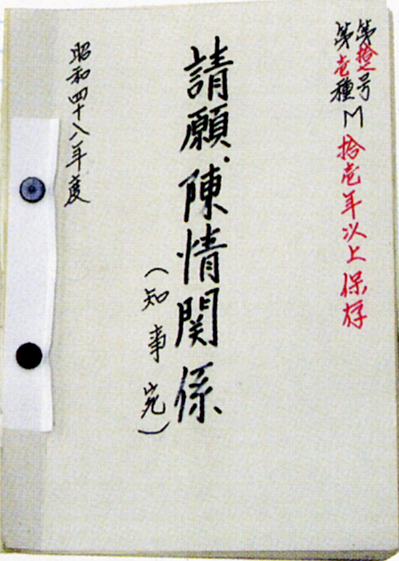 第拾号
第壱種M 拾壱年以上保存
請願・陳情関係
(知事宛)
昭和四十八年度